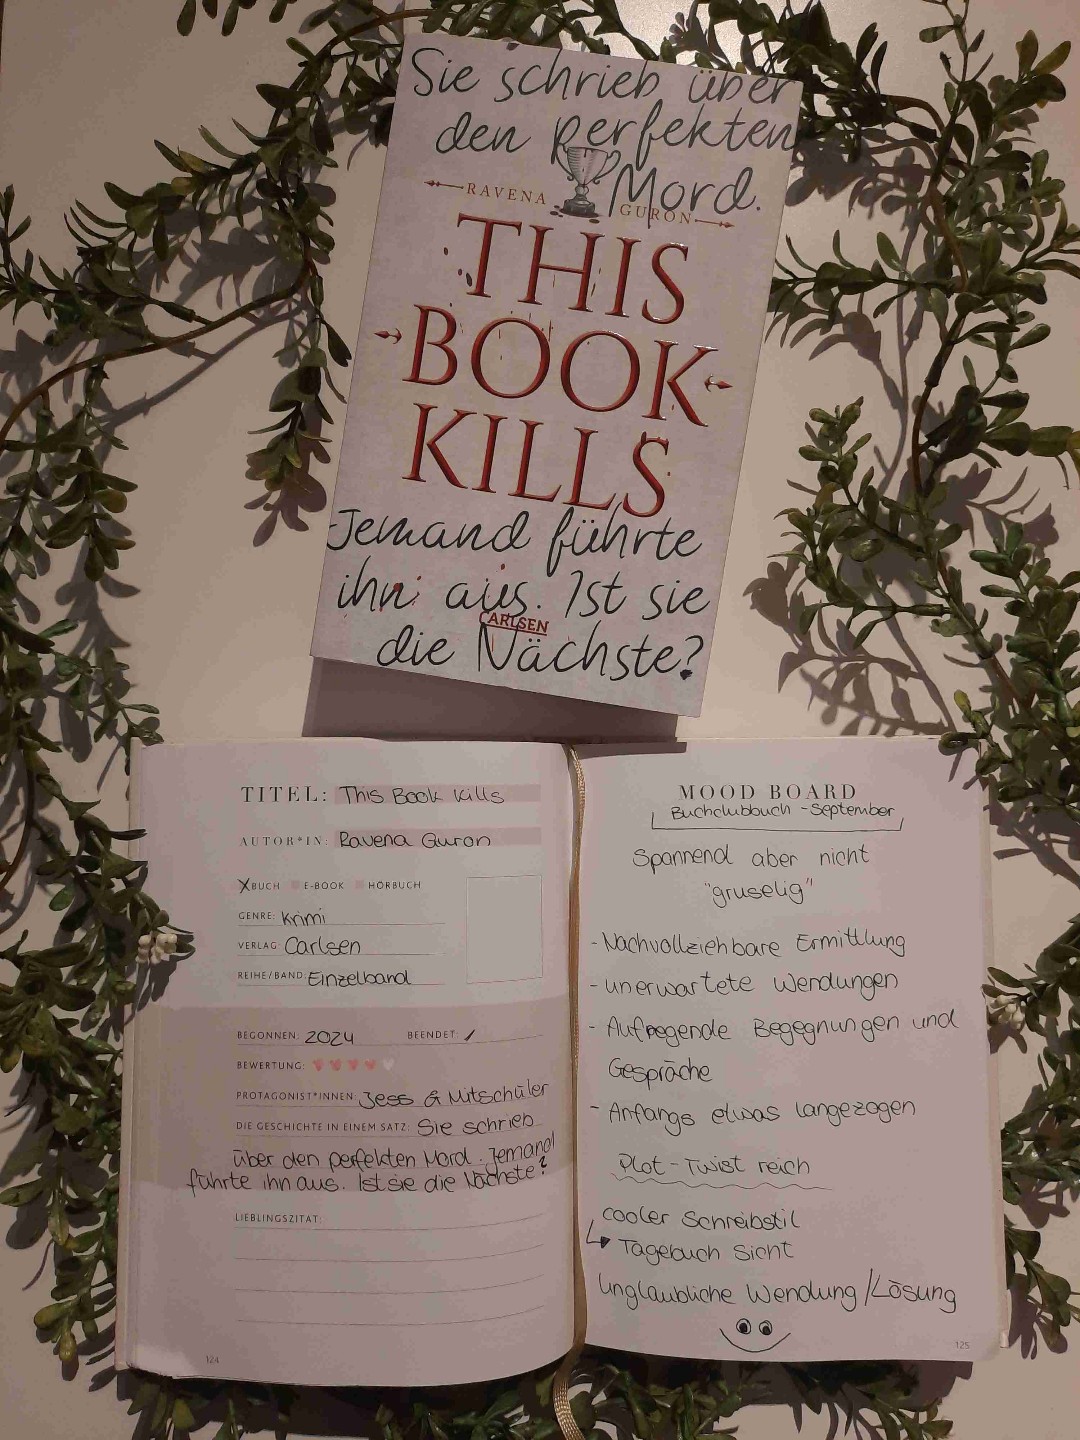 Sie schrieb über
den perfekten
Mord.
RAVENA GURON
THIS
BOOK
KILLS
Jemand führte
ihn aus. Ist sie
CARLSEN
die Nächste?
TITEL: This Book Kills
AUTOR*IN: Ravena Guron
X BUCH E-BOOK HÖRBUCH
GENRE: Krimi
VERLAG Carlsen
REIHE/BAND: Einzelband
BEGONNEN: 2024 BEENDET: /
BEWERTUNG:
PROTAGONIST*INNEN: Jess & Mitschüler
DIE GESCHICHTE IN EINEM SATZ: Sie schrieb
über den perfekten Mord. Jemand
führte ihn aus. Ist sie die Nächste?
LIEBLINGSZITAT:
124
MOOD BOARD
Buchclubbuch - September
Spannend aber nicht
"gruselig"
- Nachvollziehbare Ermittlung
- unerwartete Wendungen
- Aufregende Begegnungen und
Gespräche
- Anfangs etwas langezogen
Plot-Twist reich
cooler Schreibstil
↳ Tagebuch Sicht
Unglaubliche Wendung/Lösung
125